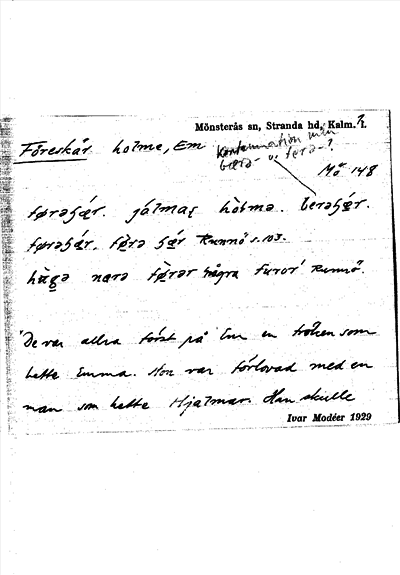 Mönsterås sn, Stranda hd, Kalm. l.
Föreskär holme, Em
kontamination mellan
bærə- o. førə-?
Mö 148
førəʂǽr. jálmaɽ hòlmə. berəʂǽr.
førəʂǽr. fø̀rə ʂǽr Runnö s. 103.
nærə fø̀rər några furor' Runnö.
"De var allra först på Em en fröken som
hette Emma. Hon var förlovad med en
man som hette Hjalmar. Han skulle
Ivar Modéer 1929